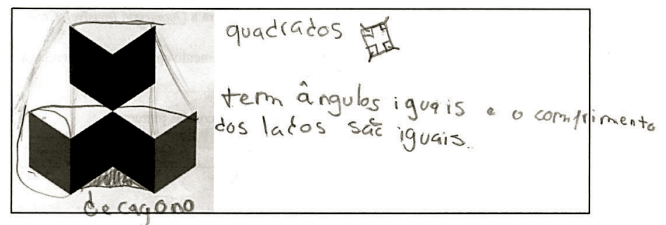 quadrados
term ângulos iguais e o comprimento
dos lados são iguais.
decagono